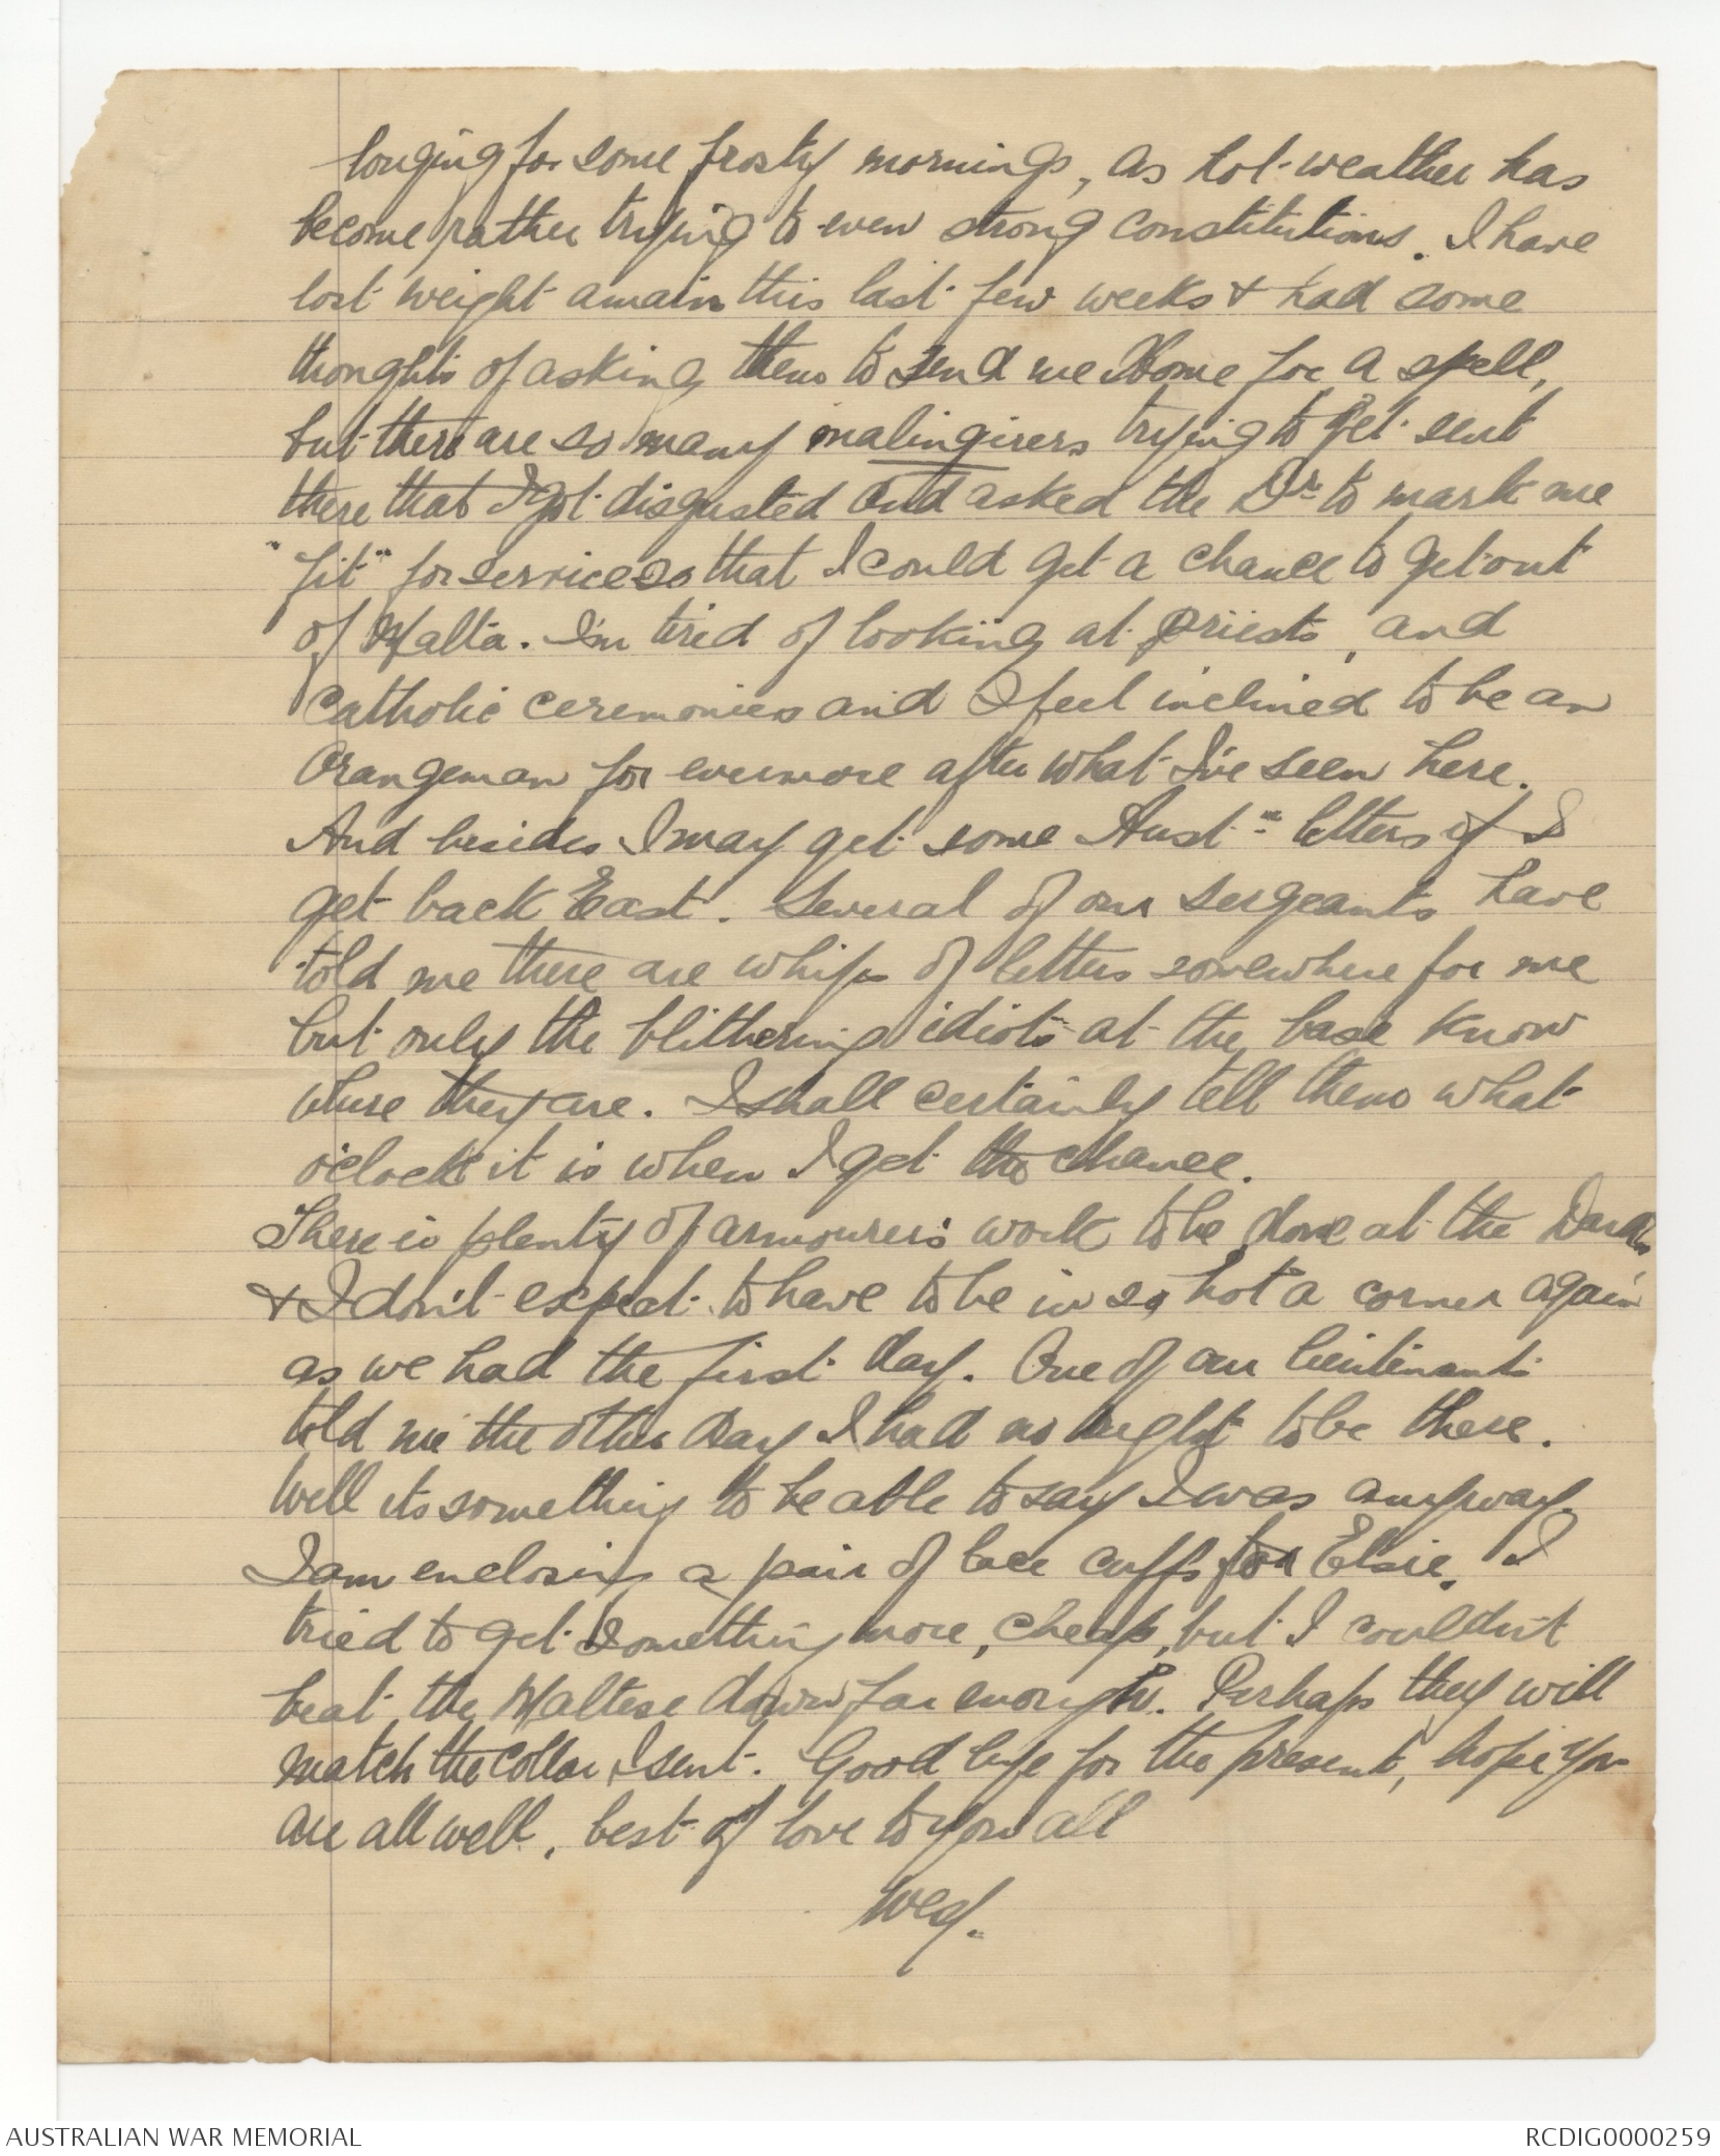 longing for some frosty mornings, as hot weather has
become rather trying to even strong constitutions. I have
lost weight amain this last few weeks & had some
thoughts of asking them to send me Home for a spell,
but there are so many malingirers trying to get sent
there that I got disgusted and asked the Dr to mark me
"fit" for service so that I could get a chance to get out
of Malta. I'm tired of looking at priests, and
catholic ceremonies and I feel inclined to be an
Orangeman for evermore after what I've seen here.
And besides I may get some Austn letters if I
get back East. Several of our sergeants have
told me there are whips of letters somewhere for me
but only the blithering idiots at the base know
where they are. I shall certainly tell them what
o'clock it is when I get the chance.
There is plenty of armourer's work to be done at the
& I don't expect to have to be in so hot a corner again
as we had the first day. One of our lieutenants
told me the other day I had no right to be there.
Well its something to be able to say I was anyway.
I am enclosing a pair of lace cuffs for Elsie. I
tried to get something more, cheap, but I couldn't
beat the Maltese down far enough. Perhaps they will
match the collar I sent. Good bye for the present, hope you
are all well, best of love to you all
Wes.
AUSTRALIAN WAR MEMORIAL
RCDIG0000259